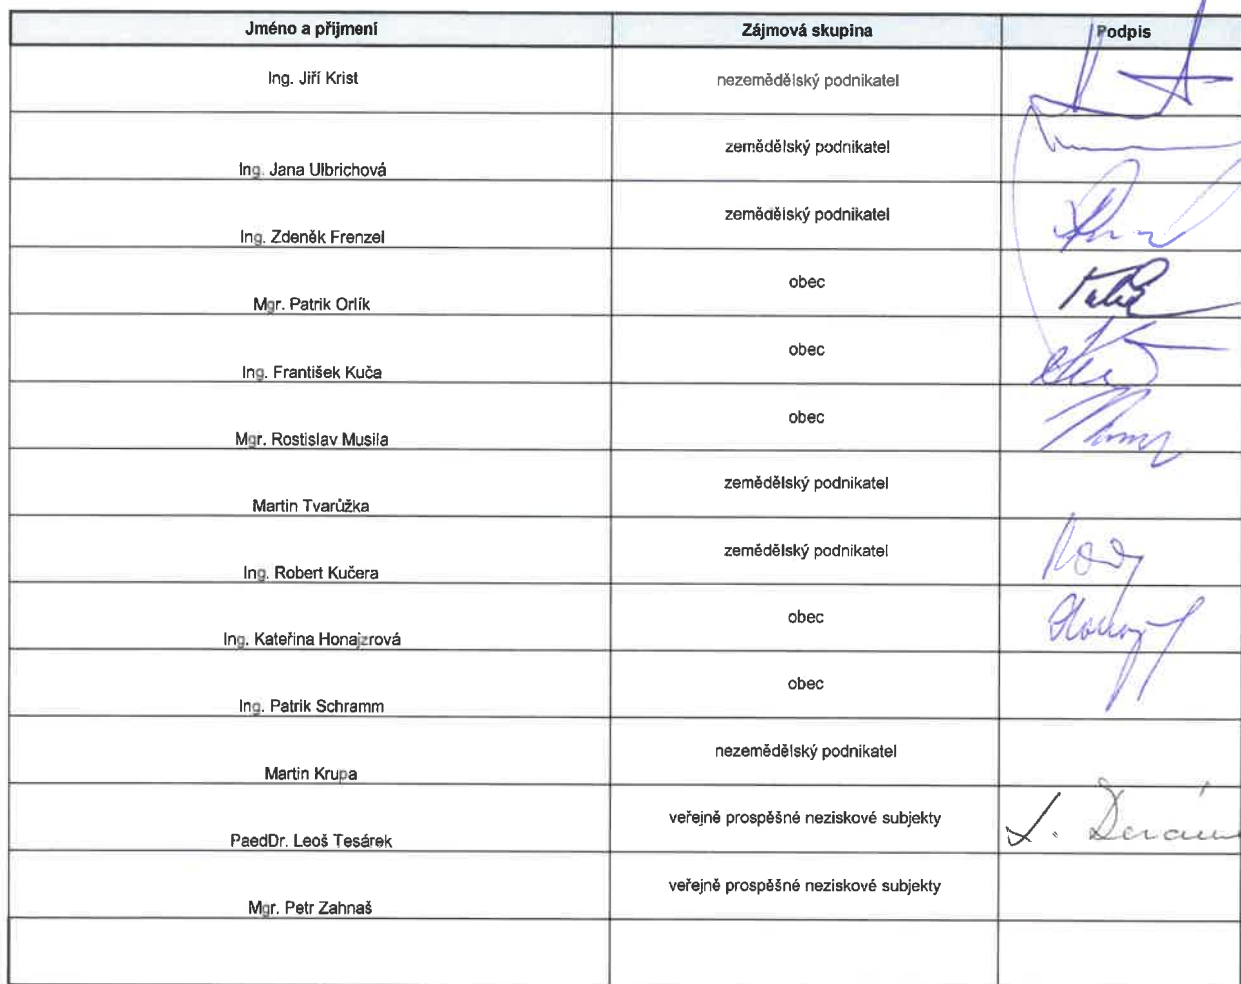 Jméno a příjmení Zájmová skupina Podpis
Ing. Jiří Krist nezemědělský podnikatel
Ing. Jana Ulbrichová zemědělský podnikatel
Ing. Zdeněk Frenzel zemědělský podnikatel
Mgr. Patrik Orlík obec
Ing. František Kuča obec
Mgr. Rostislav Musila obec
Martin Tvarůžka zemědělský podnikatel
Ing. Robert Kučera zemědělský podnikatel
Ing. Kateřina Honajzrová obec
Ing. Patrik Schramm obec
Martin Krupa nezemědělský podnikatel
PaedDr. Leoš Tesárek veřejně prospěšné neziskové subjekty
Mgr. Petr Zahnaš veřejně prospěšné neziskové subjekty